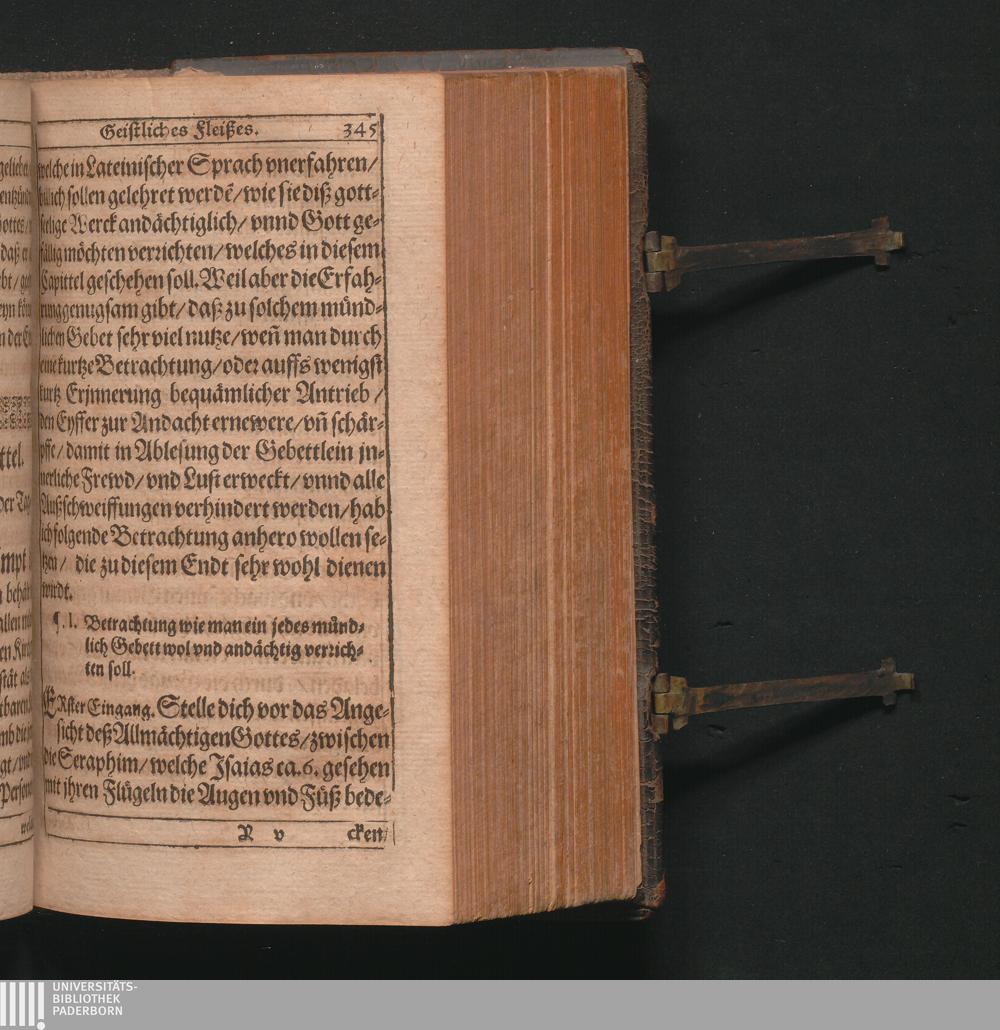 Geistliches Fleißes. 345
welche in Lateinischer Sprach vnerfahren/
billich sollen gelehret werdẽ/wie sie diß gott-
selige Werck andächtiglich/ vnnd Gott ge-
fällig möchten verrichten/welches in diesem
Capittel geschehen soll. Weil aber die Erfah-
rung genugsam gibt/ daß zu solchem münd-
lichen Gebet sehr viel nutze/weñ man durch
eine kurtze Betrachtung/oder auffs wenigst
kurtz Erjnnerung bequämlicher Antrieb/
den Eyffer zur Andacht ernewere/vñ schär-
pffe/damit in Ablesung der Gebettlein jn-
nerliche Frewd/vnd Lust erweckt/vnnd alle
Außschweiffungen verhindert werden/hab
ich folgende Betrachtung anhero wollen se-
tzen/ die zu diesem Endt sehr wohl dienen
wirdt.
¶. I. Betrachtung wie man ein jedes münd-
lich Gebett wol vnd andächtig verrich-
ten soll.
ERster Eingang. Stelle dich vor das Ange-
sicht deß Allmächtigen Gottes/zwischen
die Seraphim/welche Isaias ca. 6. gesehen
mit jhren Flügeln die Augen vnd Füß bede-
R v cken
UNIVERSITÄTS-
BIBLIOTHEK
PADERBORN